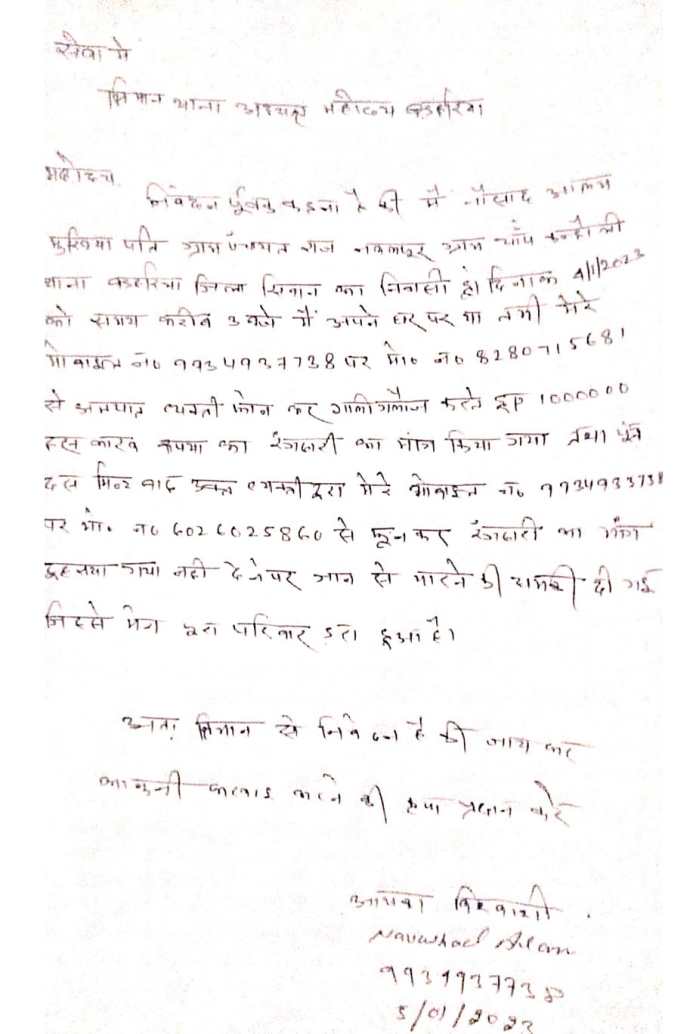 सेवा में
श्रिमान थाना अध्यक्ष महोदय बड़हरिया
महोदय
निवेदन पूर्वक कहना है की मैं नौसाद आलम
मुखिया पति ग्राम पंचायत राज नवलपुर ग्राम चाँप कन्हौली
थाना बड़हरिया जिला सिवान का निवासी हुं। दिनांक 4/1/2023
को समय करीब 3 बजे मैं अपने घर पर था तभी मेरे
मोबाइल नं० 9934937738 पर मो० नं० 8280715681
से अज्ञात व्यक्ती फोन कर गालीगलौज करते हुए 1000000
दस लाख रूपया का रंगदारी का मांग किया गया तथा पुनः
दस मिनट बाद उक्त व्यक्ती द्वारा मेरे मोबाइल नं० 9934933738
पर मो. नं० 6026025860 से फुन कर रंगदारी का मांग
दुहराया गया नही देने पर जान से मारने की धमकी दी गई
जिससे मेरा पुरा परिवार डरा हुआ है।
अतः श्रिमान से निवेदन है की जांच कर
कानुनी करवाइ करने की कृपा प्रदान करें
आपका विश्वासी
Nauwshad Alam
9934937738
5/01/2023